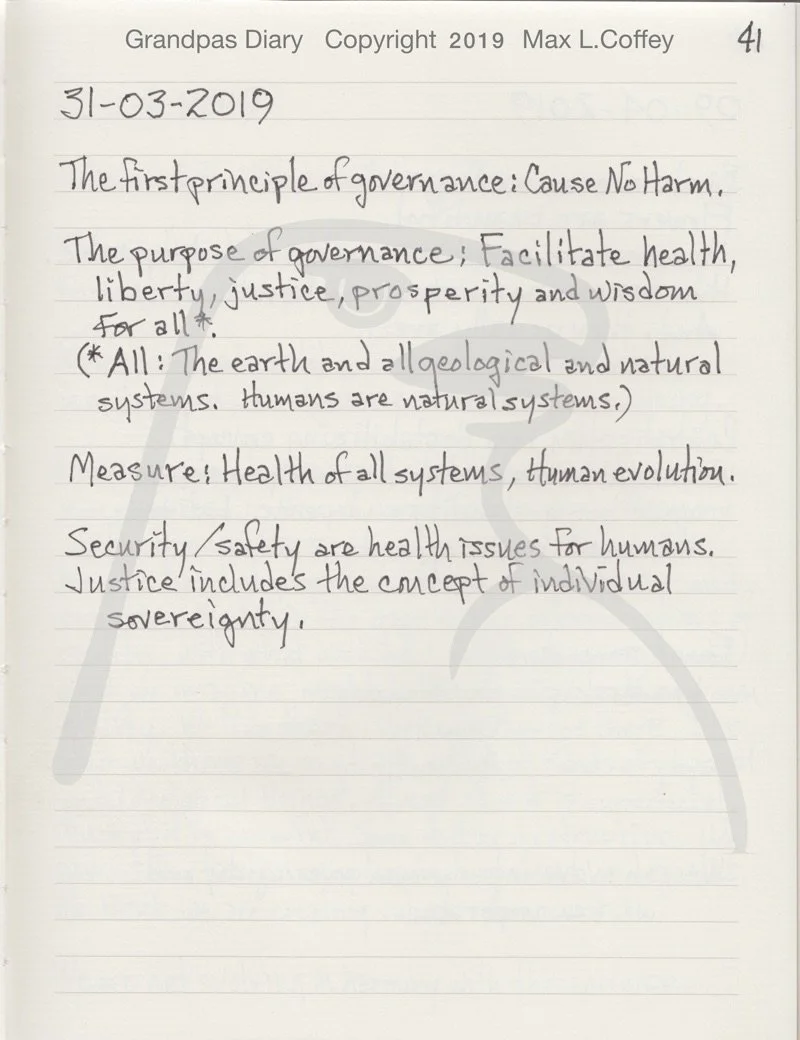 Grandpas Diary Copyright 2019 Max L.Coffey
41
31-03-2019
The first principle of governance: Cause No Harm.
The purpose of governance: Facilitate health,
liberty, justice, prosperity and wisdom
for all*.
(* All: The earth and all geological and natural
systems. Humans are natural systems.)
Measure: Health of all systems, Human evolution.
Security/safety are health issues for humans.
Justice includes the concept of individual
sovereignty.